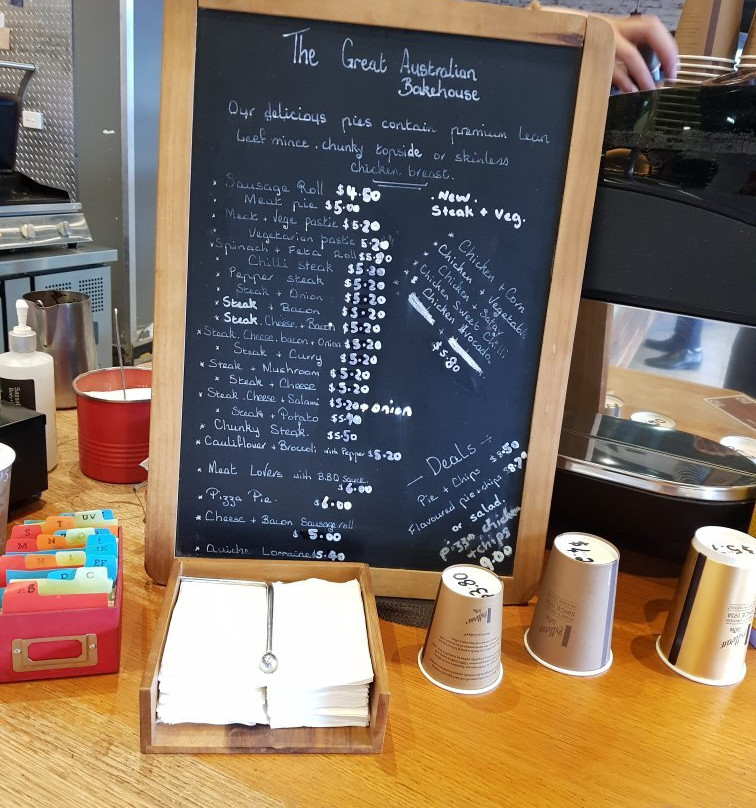 The Great Australian
Bakehouse
Our delicious pies contain premium lean
beef mince, chunky topside or skinless
chicken breast.
* Sausage Roll $4.50
* Meat pie $5.00
* Meat + Vege pastie $5.20
* Vegetarian pastie 5.20
* Spinach + Feta Roll
* Chilli steak $5.20
* Pepper steak $5.20
* Steak + Onion $5.20
* Steak + Bacon $5.20
* Steak. Cheese + Bacon $5.20
* Steak. Cheese. bacon + Onion $5.20
* Steak + Curry $5.20
* Steak + Mushroom $5.20
* Steak + Cheese $5.20
* Steak. Cheese + Salami $5.20
* Steak + Potato + onion
* Chunky Steak. $5.50
* Cauliflower + Broccoli with Pepper $5.20
* Meat Lovers with BBQ Sauce.
$6.00
* Pizza Pie. $6.00
* Cheese + Bacon Sausage roll
$5.00
* Quiche Lorraine $5.40
. New.
Steak + Veg.
* Chicken + Corn
* Chicken + Vegetable
* Chicken + Satay
* Chicken Sweet Chilli
* Chicken Avocado
+
$5.80
— Deals —
Pie + Chips $8.50
Flavoured pie + chips
or salad.
pizza chicken
+ chips
9.00
$3.80
$4
UV
S T
M N
N
D C
AB